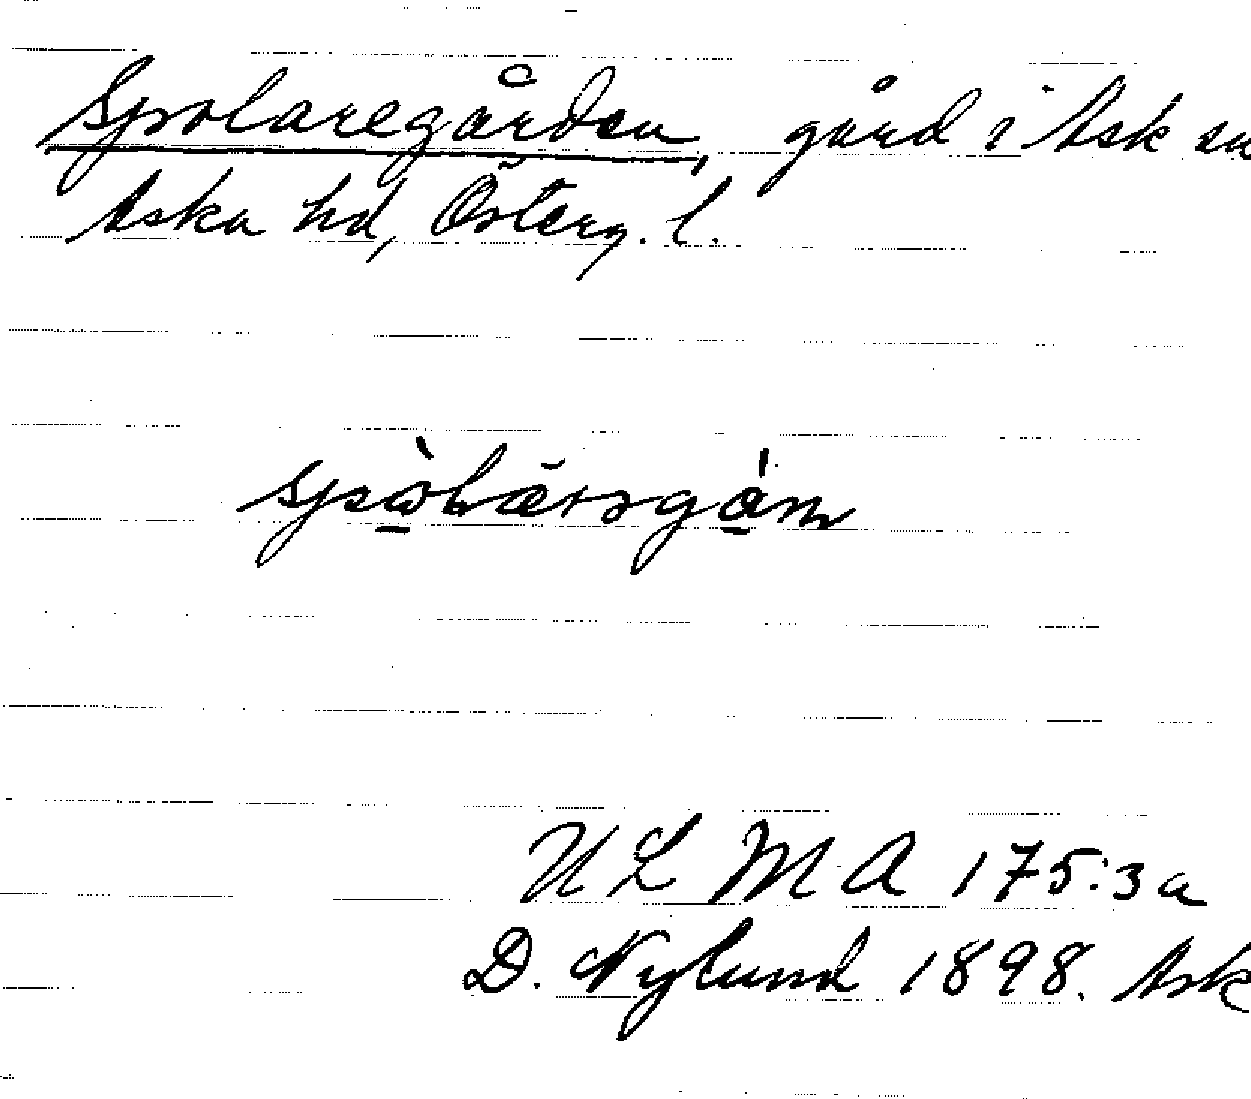 Spolaregården, gård i Ask sn
Aska hd, Österg. l.
ULMA 175:3a
D. Nylund 1898. Ask